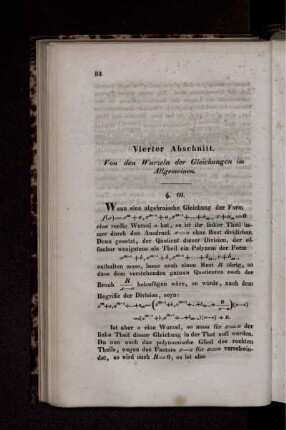 84
Vierter Abschnitt.
Von den Wurzeln der Gleichungen im
Allgemeinen.
§. 60.
Wenn eine algebraische Gleichung der Form
eine reelle Wurzel a hat, so ist ihr linker Theil im-
mer durch den Ausdruck x—a ohne Rest theilbar.
Denn gesetzt, der Quotient dieser Division, der of-
fenbar wenigstens als Theil ein Polynom der Form
enthalten muss, lasse noch einen Rest R übrig, so
dass dem vorstehenden ganzen Quotienten noch der
Bruch R/x—a beizufügen wäre, so würde, nach dem
Begriffe der Division, seyn:
Ist aber a eine Wurzel, so muss für x=a der
linke Theil dieser Gleichung in der That null werden.
Da nun auch das polynomische Glied des rechten
Theils, wegen des Factors x—a für x=a verschwin-
det, so wird auch R=0; es ist also